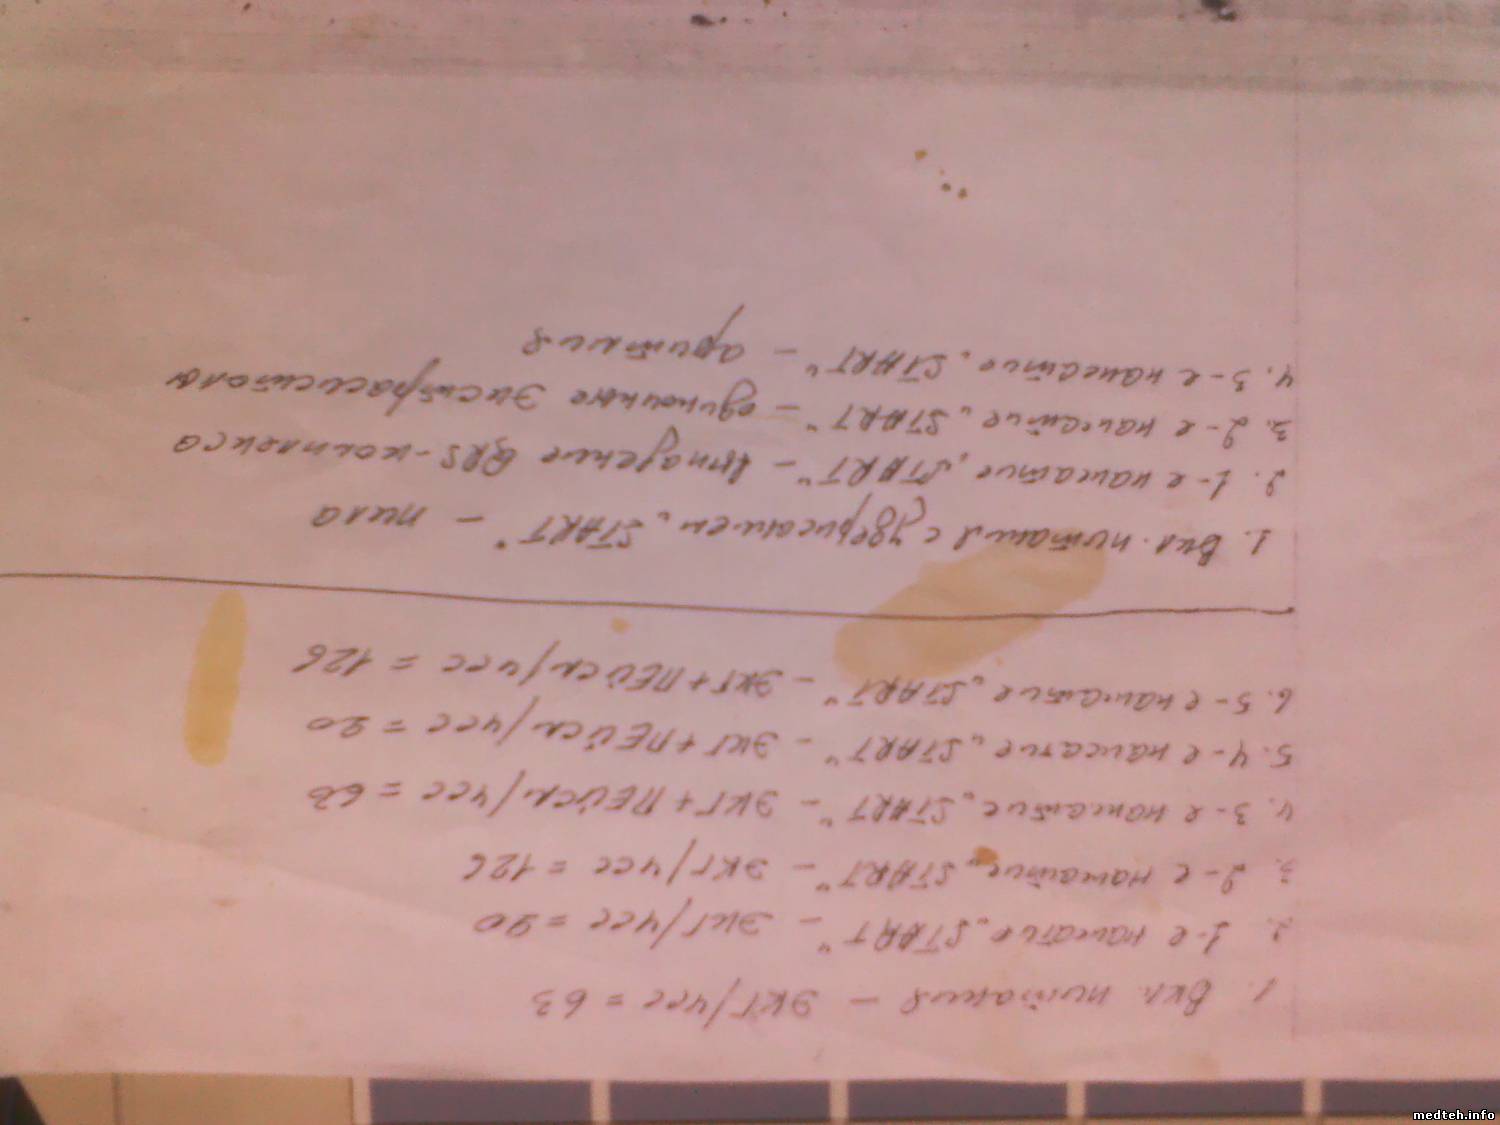 1. Вкл. питания – ЭКГ/ЧСС = 63
2. 1-е нажатие „START“ – ЭКГ/ЧСС = 90
3. 2-е нажатие „START“ – ЭКГ/ЧСС = 126
4. 3-е нажатие „START“ – ЭКГ+ПЕЙСМ/ЧСС = 63
5. 4-е нажатие „START“ – ЭКГ+ПЕЙСМ/ЧСС = 90
6. 5-е нажатие „START“ – ЭКГ+ПЕЙСМ/ЧСС = 126
1. Вкл. питания с удержанием „START“ – пила
2. 1-е нажатие „START“ – выпадение QRS-комплекса
3. 2-е нажатие „START“ – единичные экстрасистола
4. 3-е нажатие „START“ – аритмия
medteh.info